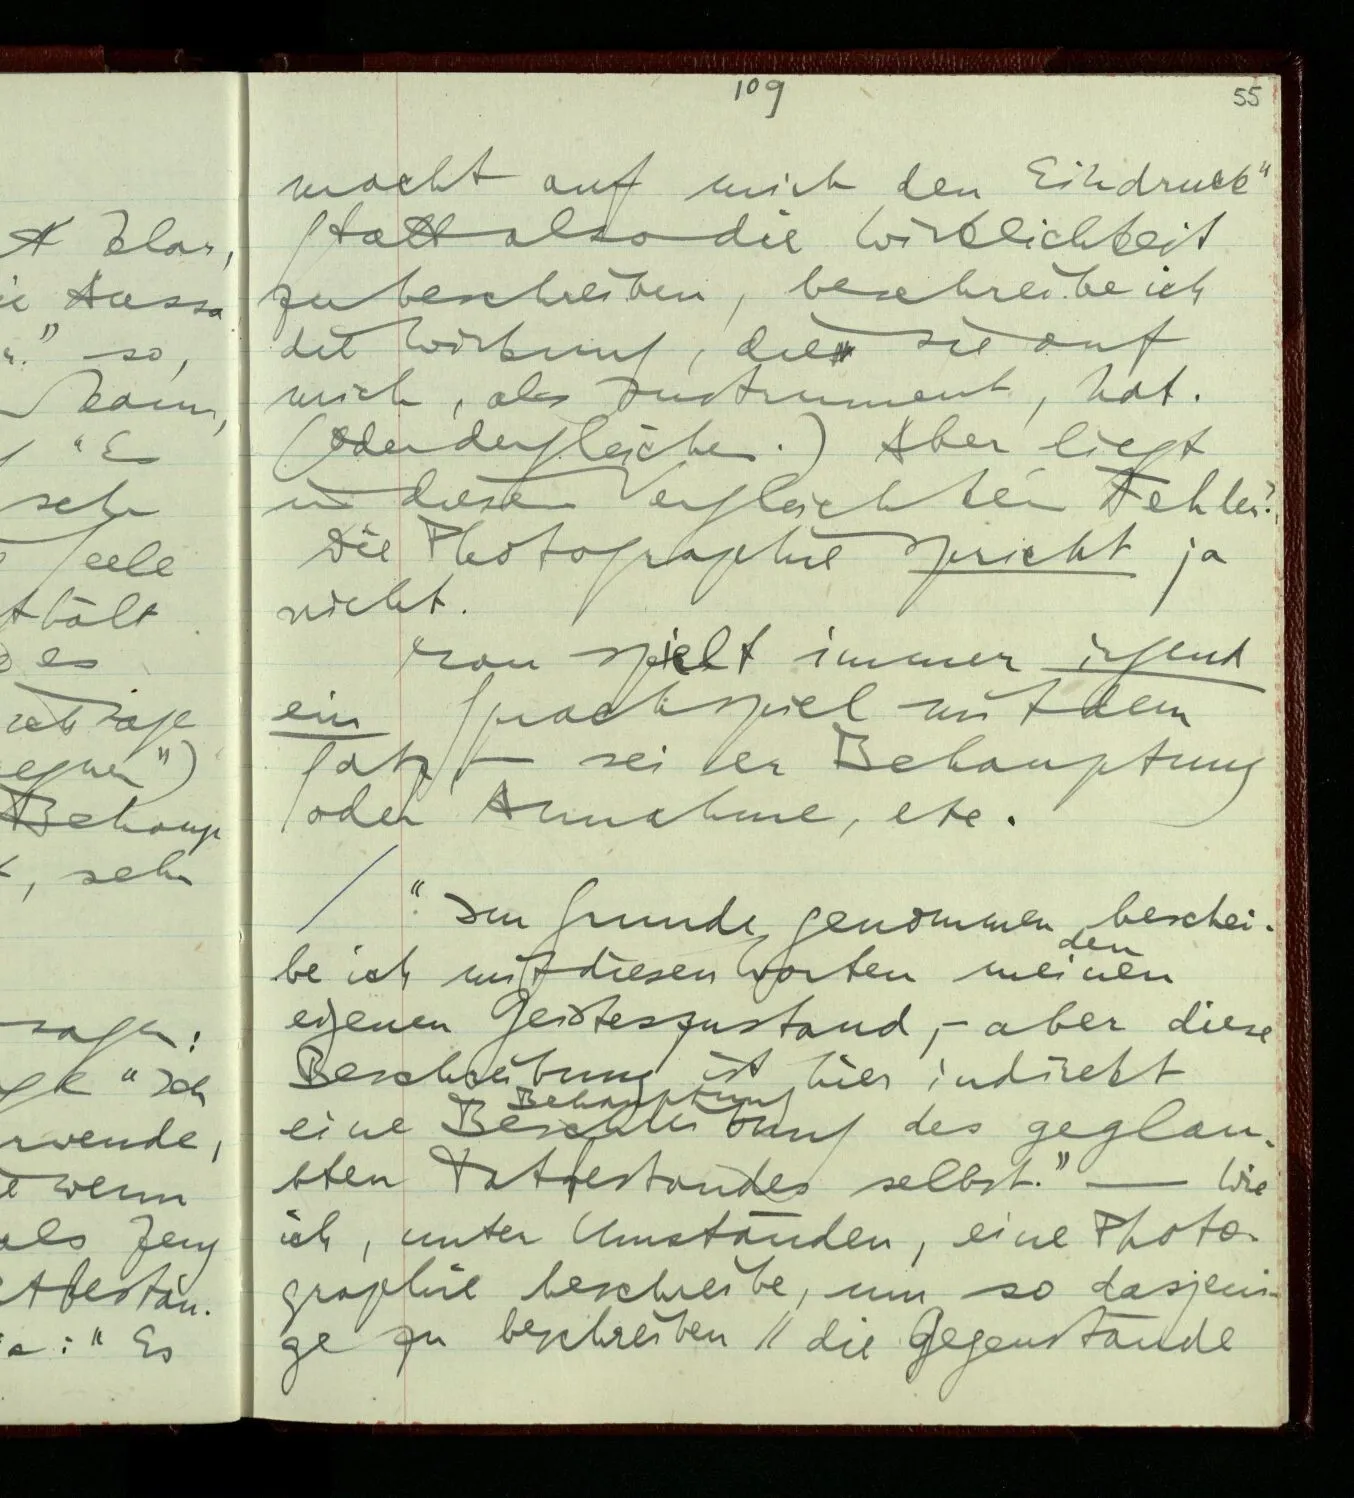 109
55
macht auf mich den Eindruck"
Statt also die Wirklichkeit
zu beschreiben, beschreibe ich
die Wirkung, die sie auf
mich, als Instrument, hat.
(Oder dergleichen.) Aber liegt
in diesem Vergleich kein Fehler?
Die Photographie spricht ja
nicht.
Man spielt immer irgend
ein Sprachspiel mit dem
Satz — sei er Behauptung
oder Annahme, etc.
"Im Grunde genommen beschei-
den
be ich mit diesen Worten meinen
eigenen Geisteszustand, – aber diese
Beschreibung ist hier indirekt
Behauptung
eine Beschreibung des geglau-
bten Tatbestandes selbst." — Wie
ich, unter Umständen, eine Photo-
graphie beschreibe, um so dasjeni-
ge zu beschreiben // die Gegenstände
klar,
so,
kann,
"Es
sehr
Seele
es
ich sage
Behaup
, sehr
sagen:
"Ich
wenn
als Zeug
: "Es